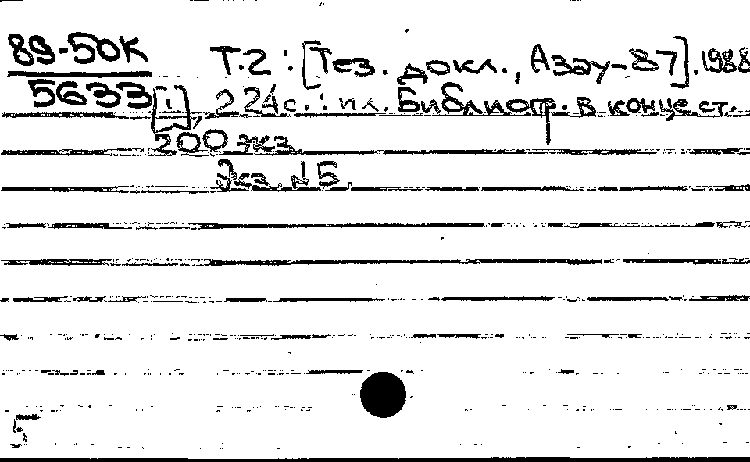 89-50К Т.2 : [Тез. докл., Азау-87]. 1988
5633 [1], 224с. : ил. Библиогр. в конце ст.
200 экз.
Экз. №5.
5